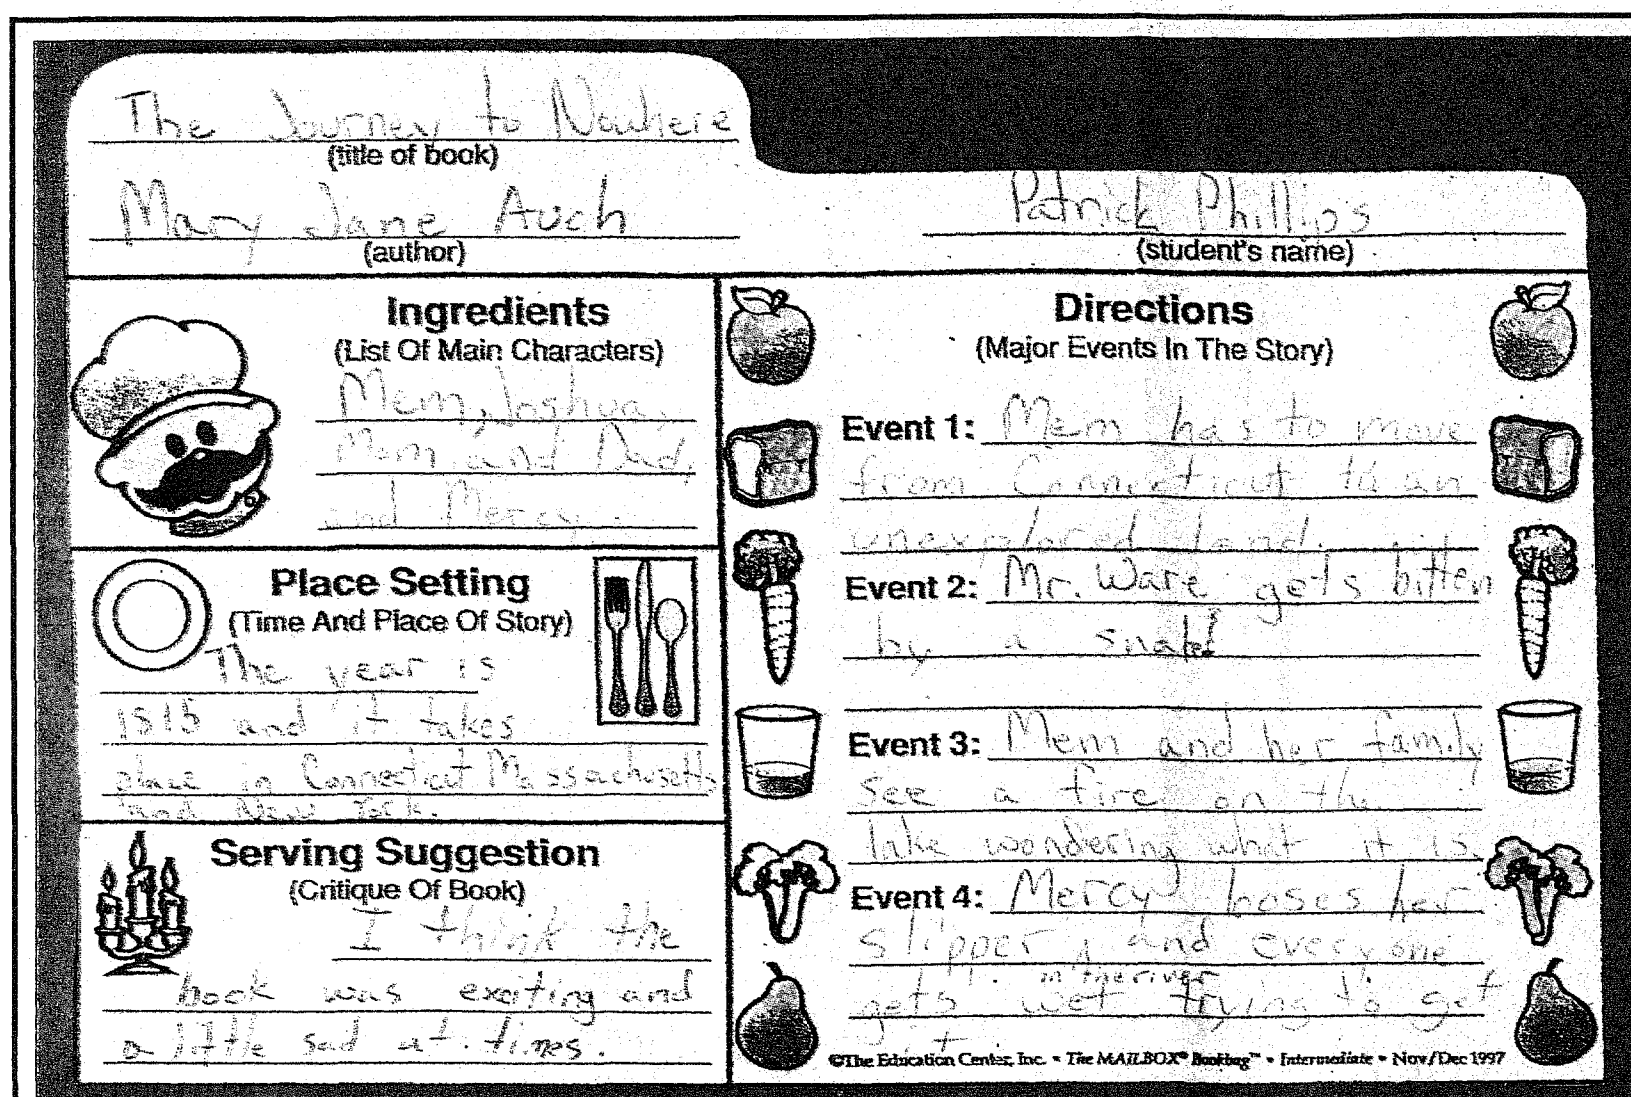 The Journey to Nowhere
(title of book)
Mary Jane Auch
(author)
Patrick Phillips
(student's name)
Ingredients
(List Of Main Characters)
Mem, Joshua,
Mom and Dad,
and Mercy.
Place Setting
(Time And Place Of Story)
The year is
1815 and it takes
place in Connecticut Massachusetts
and New York.
Serving Suggestion
(Critique Of Book)
I think the
book was exciting and
a little sad at times.
Directions
(Major Events In The Story)
Event 1: Mem has to move
from Connecticut to an
unexplored land.
Event 2: Mr. Ware gets bitten
by a snake
Event 3: Mem and her family
see a fire on the
lake wondering what it is.
Event 4: Mercy loses her
slipper, and everyone
in the river
gets wet trying to get
©The Education Center, Inc. • The MAILBOX® Bookbag™ • Intermediate • Nov/Dec 1997